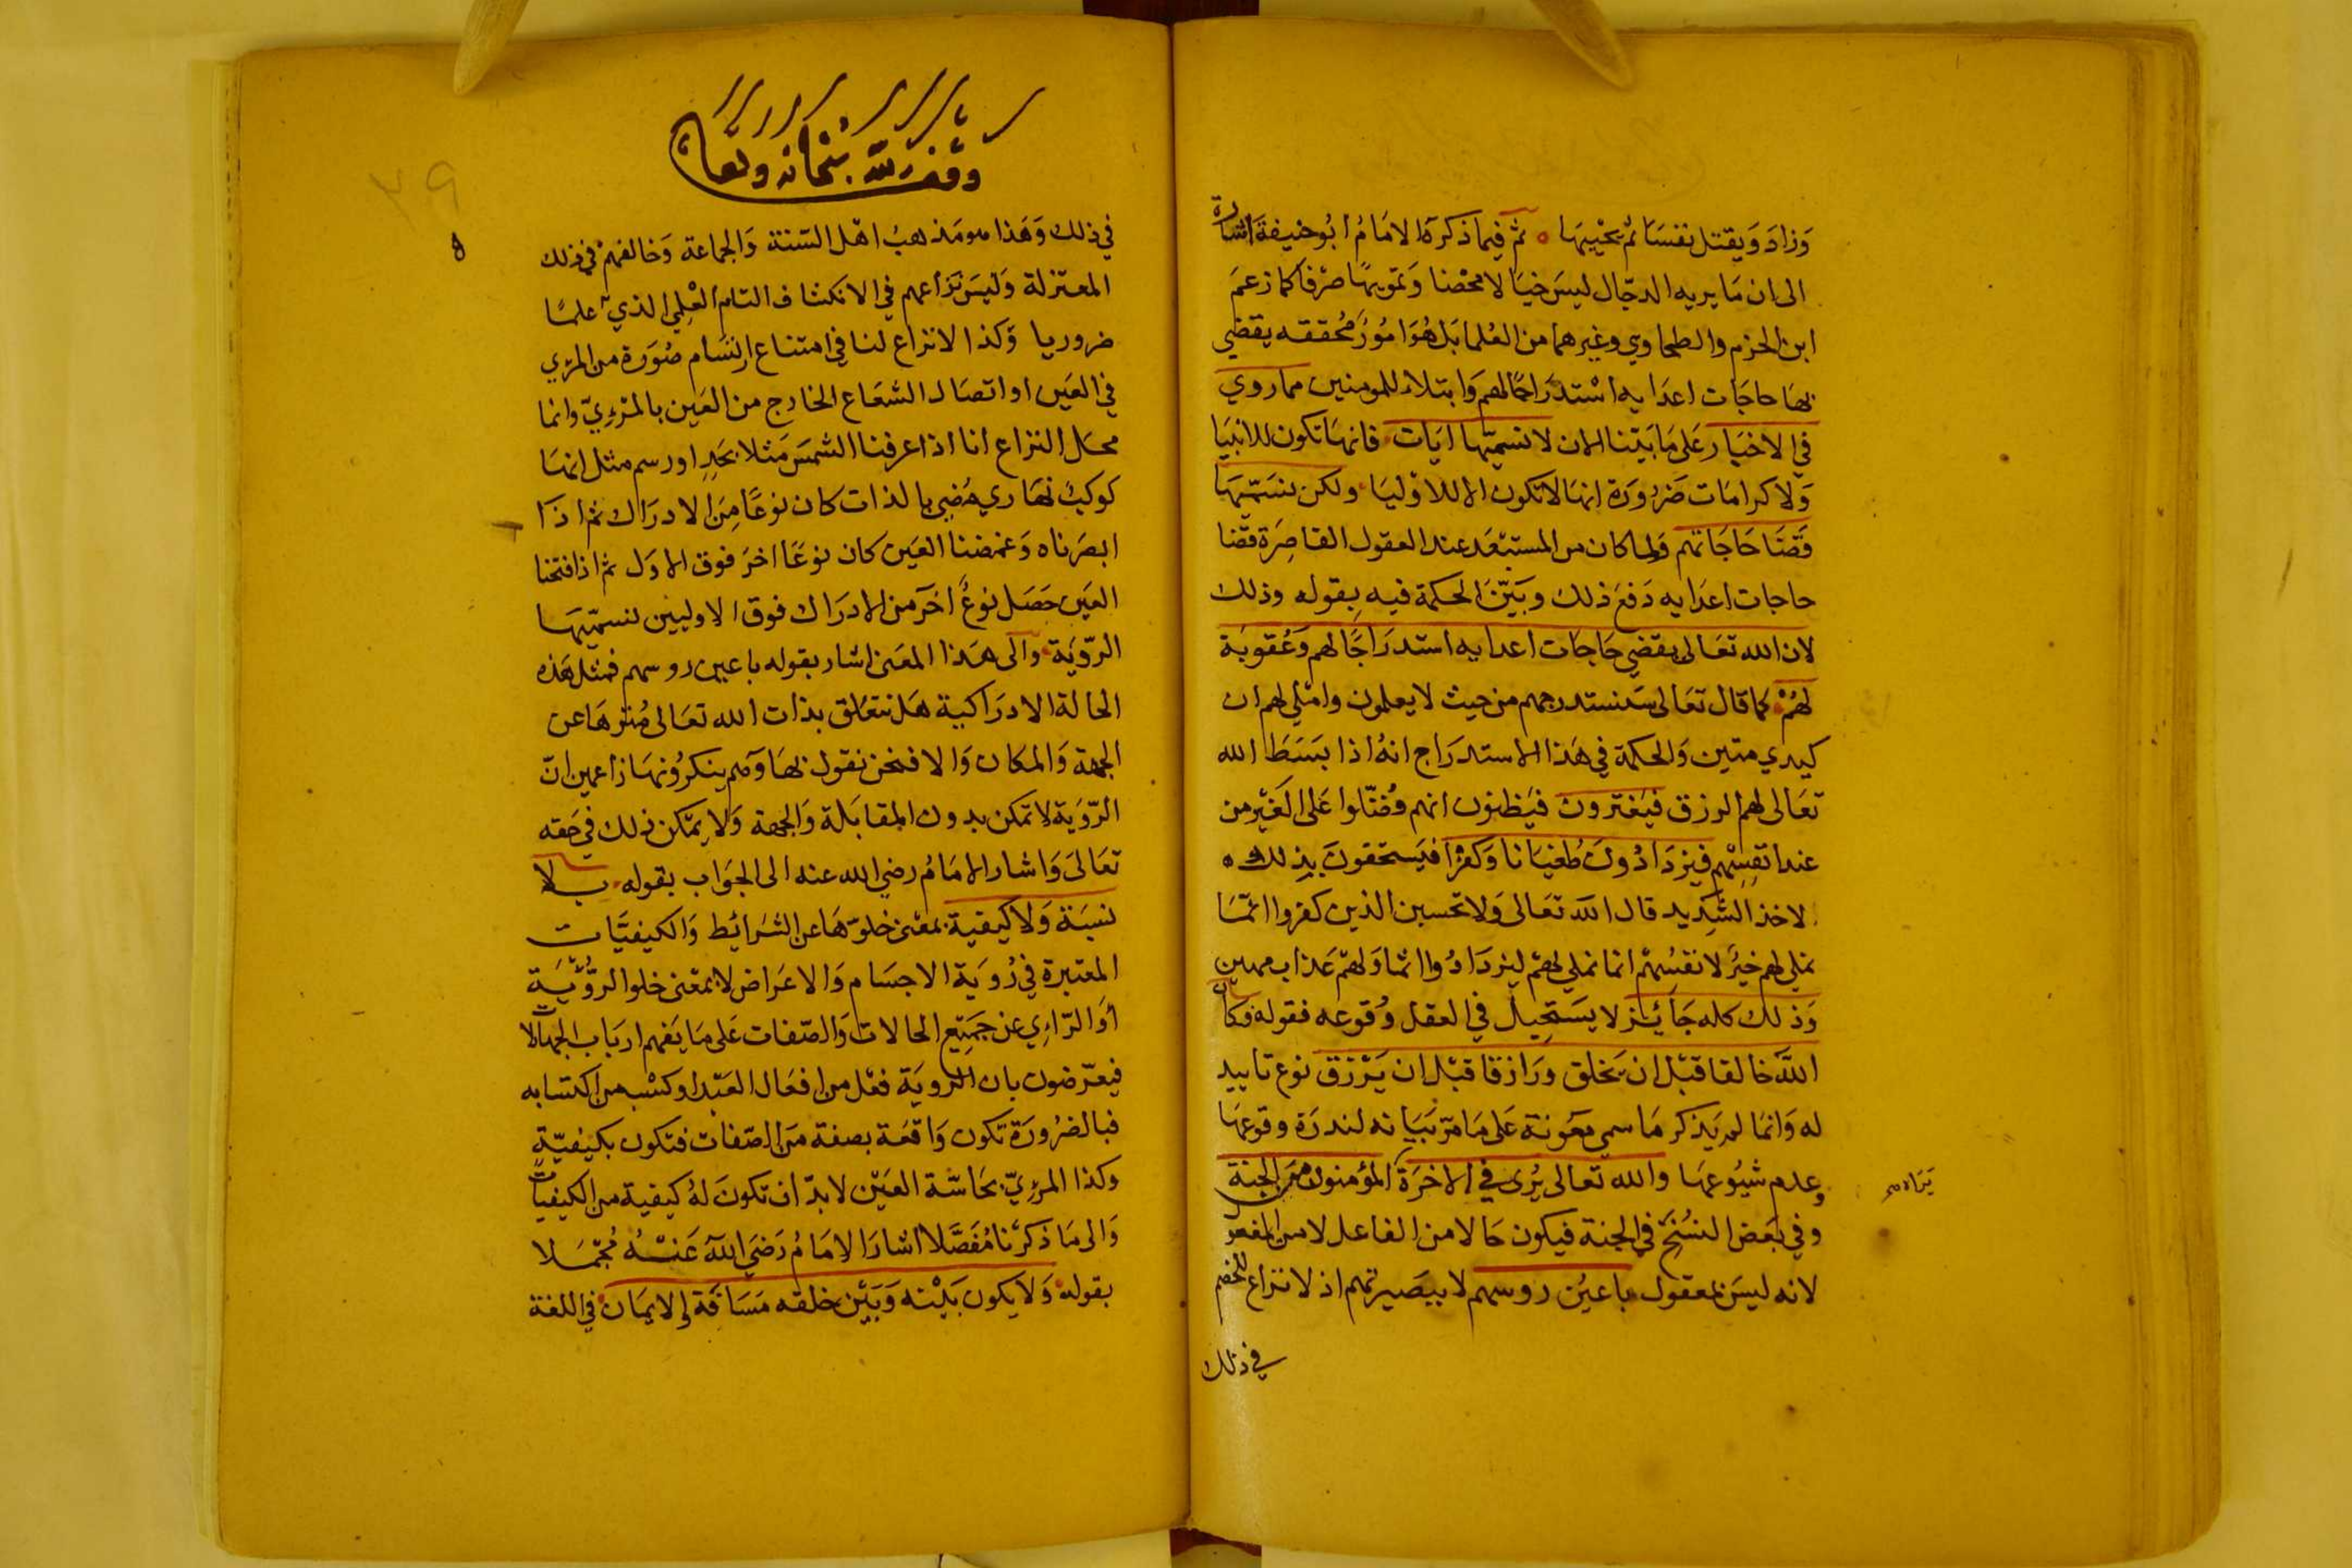 وَزادَ وَيقتل نفسَا ثم يحييهَا ثم فيما ذكرهُ الامَامُ ابُو حنيفة اشارة
الى ان مَا يريه الدجّال ليسَ خيَالا محْضا وَتمويهًا صرْفا كما زعَمَ
ابن الحزم والطحاوي وغيرهما من العُلما بَل هُوَ امُورٌ مُحققه يقضي
بهَا حاجَات اعدَايه اسْتدرَاجًا لهم وَابتلاء للمومنين مما روي
في الاخبَار عَلى مَا بَيّنا الان لا نسميّها ايَات فانهَا تكون للانبيَا
وَلا كرامَات ضَرُورَة انهَا لا تكون الا للاوْليَا ولكن نسَمّيهَا
قضَا حَاجَاتهم وَلما كان من المستبْعَد عند العقول القاصِرَة قضا
حاجات اعدَايه دَفعَ ذلك وبَيّن الحكمة فيه بقوله وذلك
لان الله تعَالى يقضي حَاجَات اعدايه استدرَاجًا لهم وَعُقوبَة
لهُمْ كما قال تعَالى سَنستدرجهم من حيث لا يعلمون واملي لهم ان
كيدي متين وَالحكمة في هَذا الاستدرَاج انهُ اذا بَسَطَ الله
تعَالى لهم الرزق فيَغترون فيَظنون انهم فُضّلوا عَلى الغَيْر من
عند انفسِهم فيزدَادُونَ طُغيَانا وَكفرًا فيَستحقونَ بذلك
الاخذ الشّديد قال الله تعَالى وَلا تحسبن الذين كفروا انمّا
نملي لهم خيرٌ لانفسُِهمْ انما نملي لهمْ ليزدَادُوا اثما وَلهمْ عَذاب مهين
وَذلك كله جَائِز لا يسَتحِيل في العقل وُقوعه فقوله وَكانَ
اللهُ خالقا قبْل ان يَخلق وَرَازقا قبْل ان يَرْزق نوع تاييد
له وَانمَا لم يَذكر مَا سمي مَعُونة عَلى مَا مرّ بَيَانه لندرَة وقوعهَا
وعدم شيُوعهَا والله تعالى يُرى في الاخرَة المؤمنون من الجنة
يَرَاه
وفي بَعض النسُخ في الجنة فيكون حَالا من الفاعل لا من المفعو
لانه ليسَ بمعقول باعيُن روسهم لا ببَصيرتهم اذ لا نزاع للخصم
في ذلك
وقف لله سبحانه وتعالى
٣٩
في ذلك وَهَذا هو مَذهبُ اهْل السّنة وَالجماعة وَخالفهمْ في ذلك
المعتزلة وَليسَ نزَاعهم في الانكشاف التام العِلمي الذي علمًا
ضروريا وَكذا لا نزاع لنا في امتناع ارتسَام صُوَرة من المرئي
في العَين او اتصَال الشعَاع الخارج من العَين بالمرْئيّ وانما
محَل النزاع انا اذا عرفنا الشمسَ مَثلا بحَدٍ او رسم مثل انهَا
كوكبٌ نهَاري مُضيٌ بالذات كان نوعًا مِنَ الادرَاك ثم اذَا
ابصَرناه وَغمضنا العَين كان نوعًا اخرَ فوق الاوَل ثم اذا فتحنا
العَين حَصَل نوعٌ اخر من الادرَاك فوق الاوليين نسميّهَا
الرّؤيَة وَالى هَذا المعَنى اشار بقوله باعين روسهم فمثل هَذه
الحَالة الادرَاكية هَل تتعَلق بذات الله تعَالى مُنزهَا عن
الجهة وَالمكان وَالا فنحن نقول بهَا وَهم ينكرُونهَا زاعمين انّ
الرّؤيَة لا تمكن بدون المقابَلة وَالجهة وَلا يمَكن ذلك في حَقه
تعَالىَ وَاشار الامَامُ رضي الله عنه الى الجوَاب بقوله بلا
نسبَة وَلا كيفية بمعْنى خلوّهَا عن الشرَائِط وَالكيفيَّات
المعتبرة في رُويَة الاجسَام وَالاعرَاض لا بمعْنى خلو الرّؤيَة
اوَ الرّاءِي عن جمَيع الحالات وَالصّفات عَلى مَا يَفهم اربَاب الجهالات
فيعترضون بان الرويَة فعْل من افعَال العَبْد او كسْب من اكتسَابه
فبالضرُورَة تكون وَاقعَة بصفة من الصّفات فتكون بكيفيّة
وكذا المرئِيّ بحَاسّة العَيْن لا بدّ ان تكونَ لهُ كيفية من الكيفيات
وَالى مَا ذكرْنا مُفَصَّلا اشارَ الامَامُ رَضيَ الله عَنْهُ مُجمَلا
بقوله وَلا يكون بَيْنه وَبَيْن خلقه مَسَافَة والايمَان في اللغة